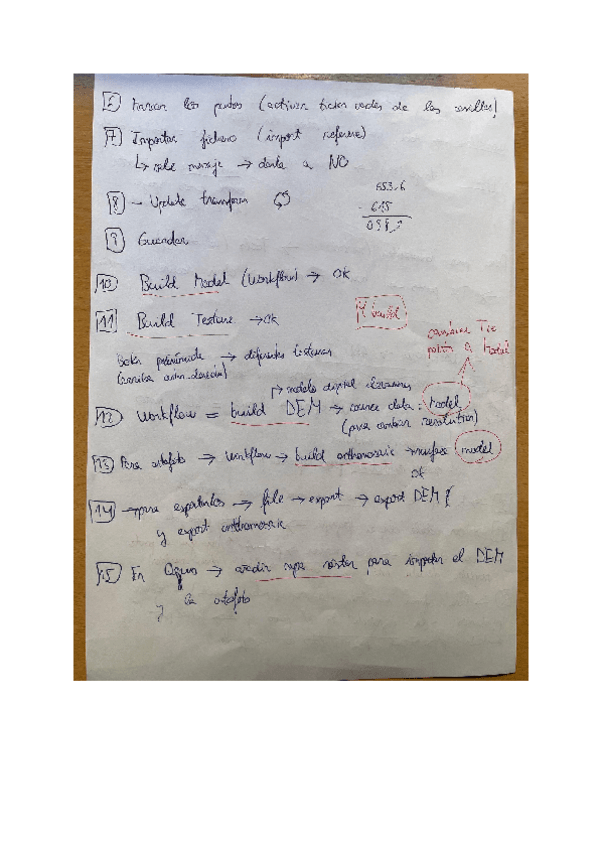 6 Marcar los puntos (activar los vertices de las casillas)
7 Importar fichero (import reference)
↳ sale mensaje → darle a NO
8 - Update transform
653.6
- 615
9 Guardar
10 Build Model (Workflow) → OK
11 Build Texture → OK
build
cambiar Tie points a Model
Botón → diferentes texturas
↱ modelo digital elevaciones
12 Workflow = build DEM → source data: Model
(para cambiar resolution)
13 Para ortofoto → workflow → build orthomosaic → surface model
OK
14 → para exportarlos → file → export → export DEM
y export orthomosaic
15 En Qgis → añadir capa ráster para importar el DEM
y la ortofoto